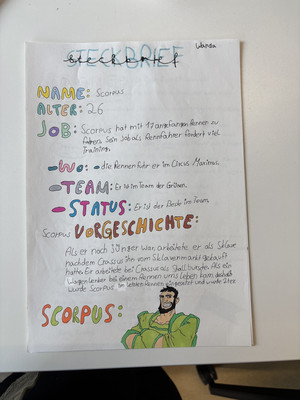 Wanda
STECKBRIEF
Steckbrief
NAME: Scorpus
ALTER: 26
JOB: Scorpus hat mit 17 angefangen Rennen zu
fahren. Sein Job als Rennfahrer fordert viel
Training.
-WO: - die Rennen fuhr er im Circus Maximus.
-TEAM: Er ist im Team der Grünen.
-STATUS: Er ist der Beste im Team.
Scorpus VORGESCHICHTE:
Als er noch jünger war, arbeitete er als Sklave
nachdem Crassus ihn vom Sklavenmarkt gekauft
hatte. Er arbeitete bei Crassus als Stall bursche. Als ein
Wagenlenker bei einem Rennen ums Leben kam deshalb
wurde Scorpus im letzten Rennen eingesetzt und wurde 2ter.
SCORPUS: